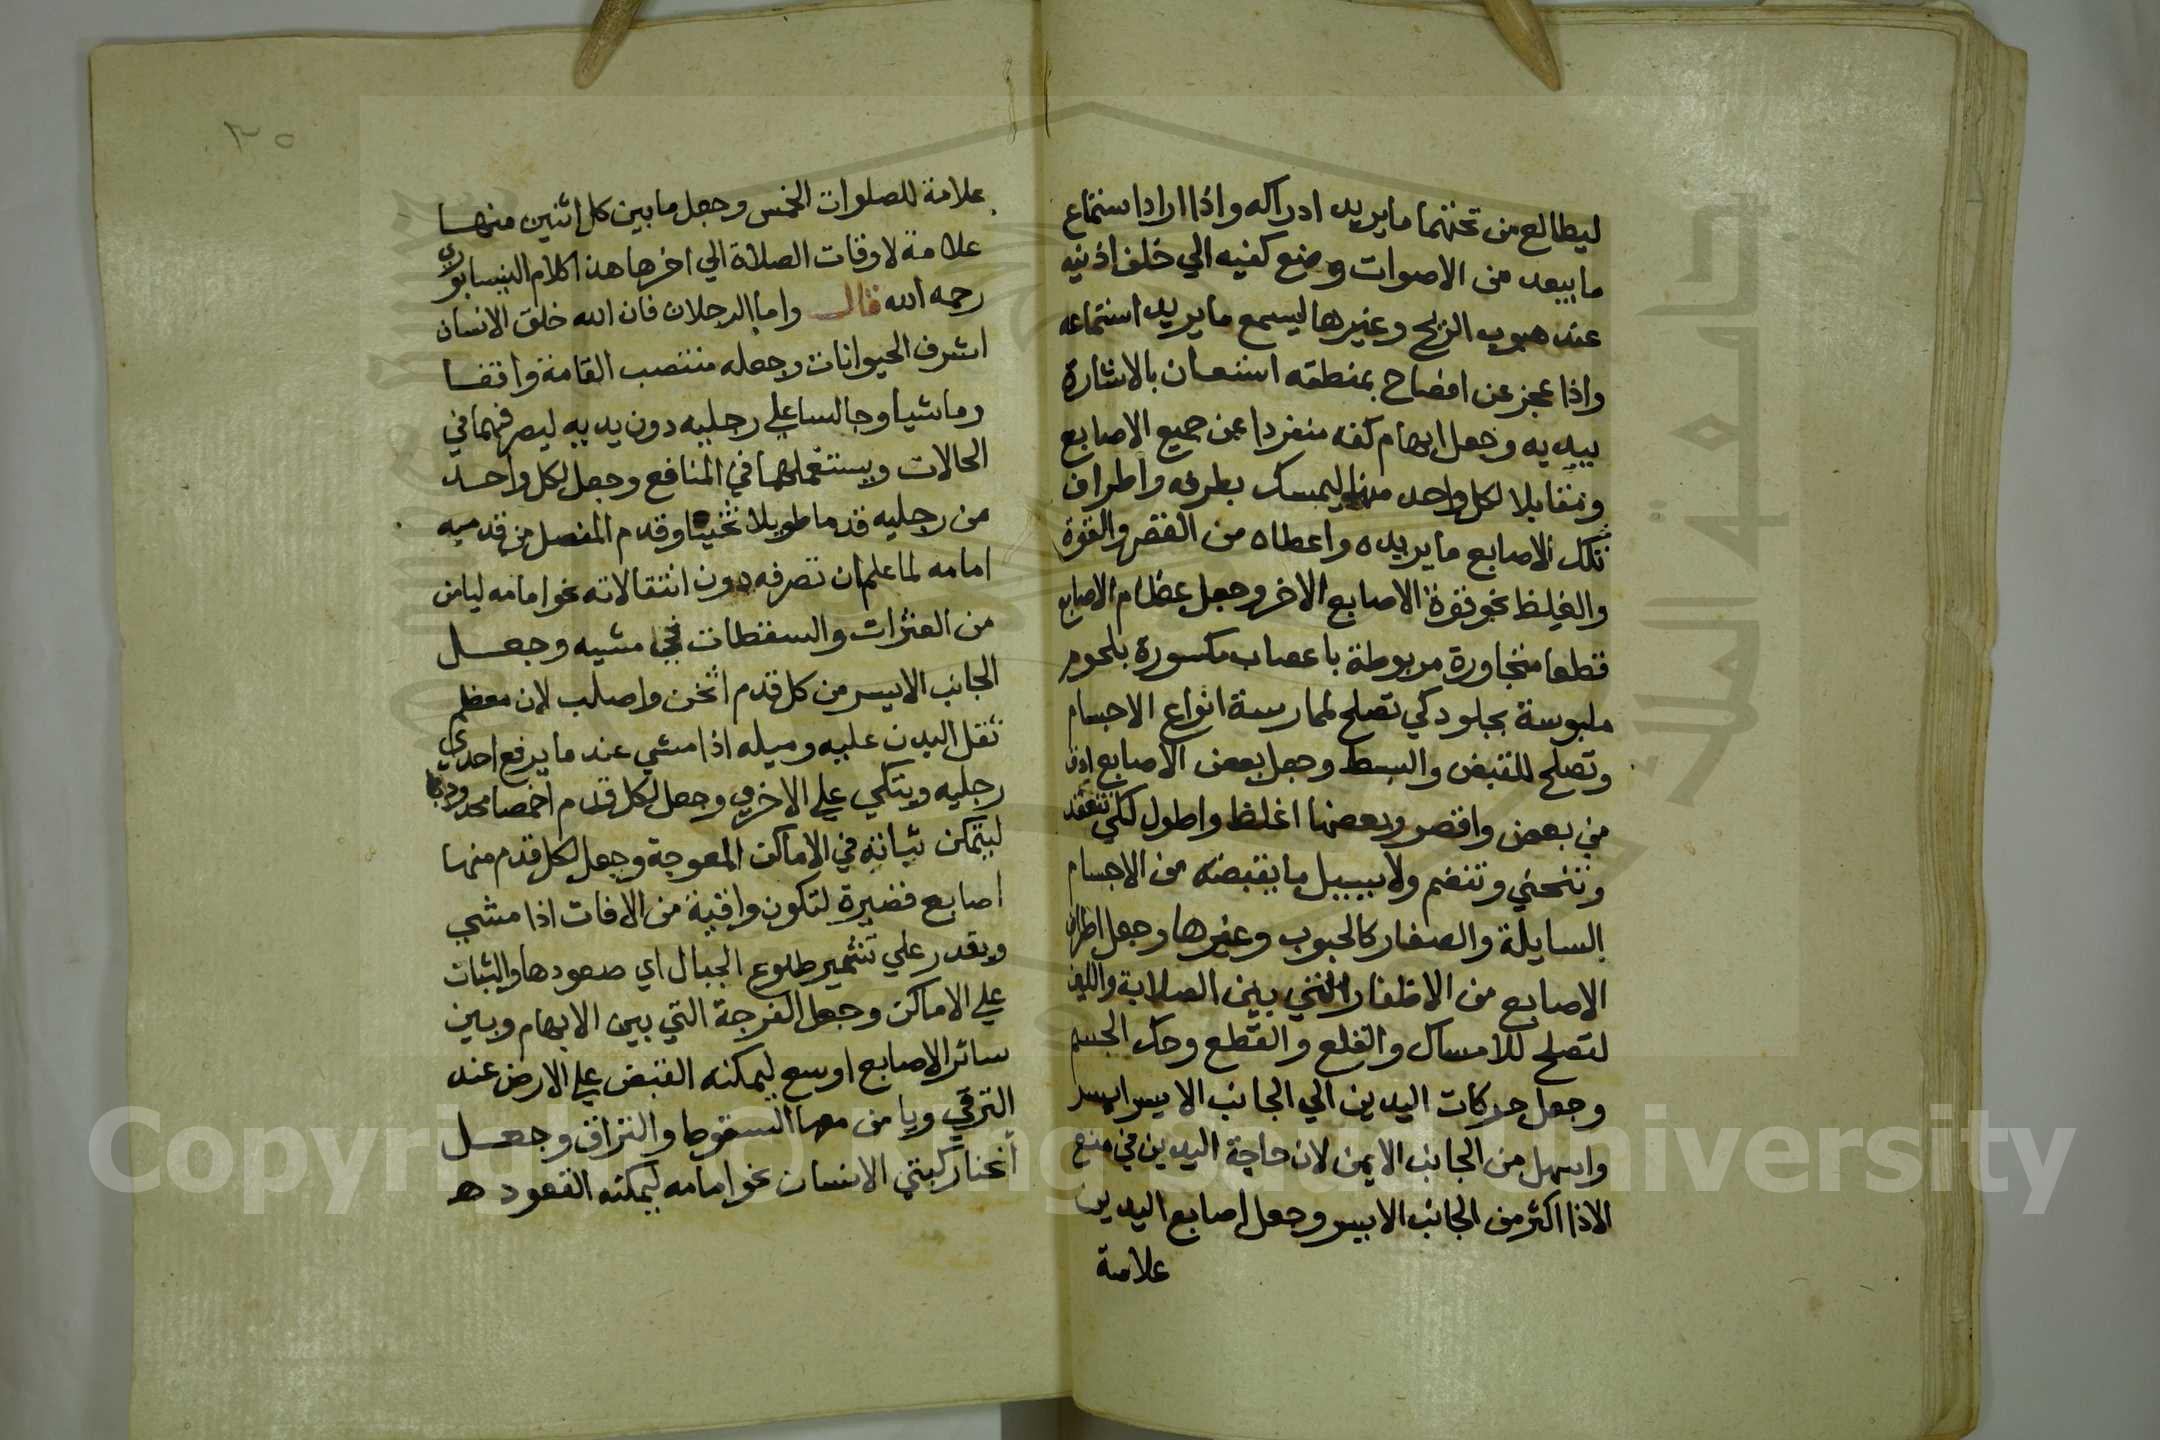 ليطالع من تحتهما ما يريد ادراكه واذا اراد استماع
ما يبعد من الاصوات وضع كفيه الي خلف اذنيه
عند هبوب الريح وغيرها ليسمع ما يريد استماعه
واذا عجز عن افضاح بمنطقه استعان بالاشارة
بيديه وجعل ابهام كفه منفردا عن جميع الاصابع
ومتقابلا لكل واحد منها ليمسك بطرفه واطراف
تلك الاصابع ما يريده واعطاه من القصر والقوة
والغليظ نحو قوة الاصابع الاخر وجعل عظام الاصابع
قطعا متجاورة مربوطة باعصاب مكسورة بلحوم
ملبوسة بجلود كي تصلح لممارسة انواع الاجسام
وتصلح للقبض والبسط وجعل بعض الاصابع ادق
من بعض واقصر وبعضها اغلظ واطول لكي تنعقد
وتنحني وتنضم ولا يسيل ما يقبضه من الاجسام
السايلة والصغار كالحبوب وغيرها وجعل اطراف
الاصابع من الاظفار التي بين الصلابة واللين
لتصلح للامساك والقلع والقطع وحك الجسم
وجعل حركات اليدين الي الجانب الايسر ايسر
واسهل من الجانب الايمن لان حاجة اليدين في منع
الاذا اكثر من الجانب الايسر وجعل اصابع اليدين
علامة
٣٥
علامة للصلوات الخمس وجعل ما بين كل اثنين منها
علامة لاوقات الصلاة الي اخرها هذا كلام النيسابوري
رحمه الله قال واما الرجلان فان الله خلق الانسان
اشرف الحيوانات وجعله منتصب القامة واقفا
وماشيا وجالسا علي رجليه دون يديه ليصرفهما في
الحالات ويستعملهما في المنافع وجعل لكل واحد
من رجليه قدما طويلا ثخينا وقدم المفصل من قدميه
امامه لما علم ان تصرفه دون انتقالاته نحو امامه ليامن
من العثرات والسقطات في مشيه وجعل
الجانب الايسر من كل قدم اثخن واصلب لان معظم
ثقل البدن عليه وميله اذا مشي عند ما يرفع احدي
رجليه ويتكي علي الاخري وجعل لكل قدم اخمصا محدودبا
ليتمكن ثباته في الاماكن المعوجة وجعل لكل قدم منها
اصابع قصيرة لتكون واقية من الافات اذا مشي
ويقدر علي تشمير طلوع الجبال اي صعودها والثبات
علي الاماكن وجعل الفرجة التي بين الابهام وبين
سائر الاصابع اوسع ليمكنه القبض علي الارض عند
الترقي ويامن معها السقوط والنزاق وجعل
انحنا ركبتي الانسان نحو امامه ليمكنه القعود ه
Copyright © King Saud University
جامعة الملك سعود